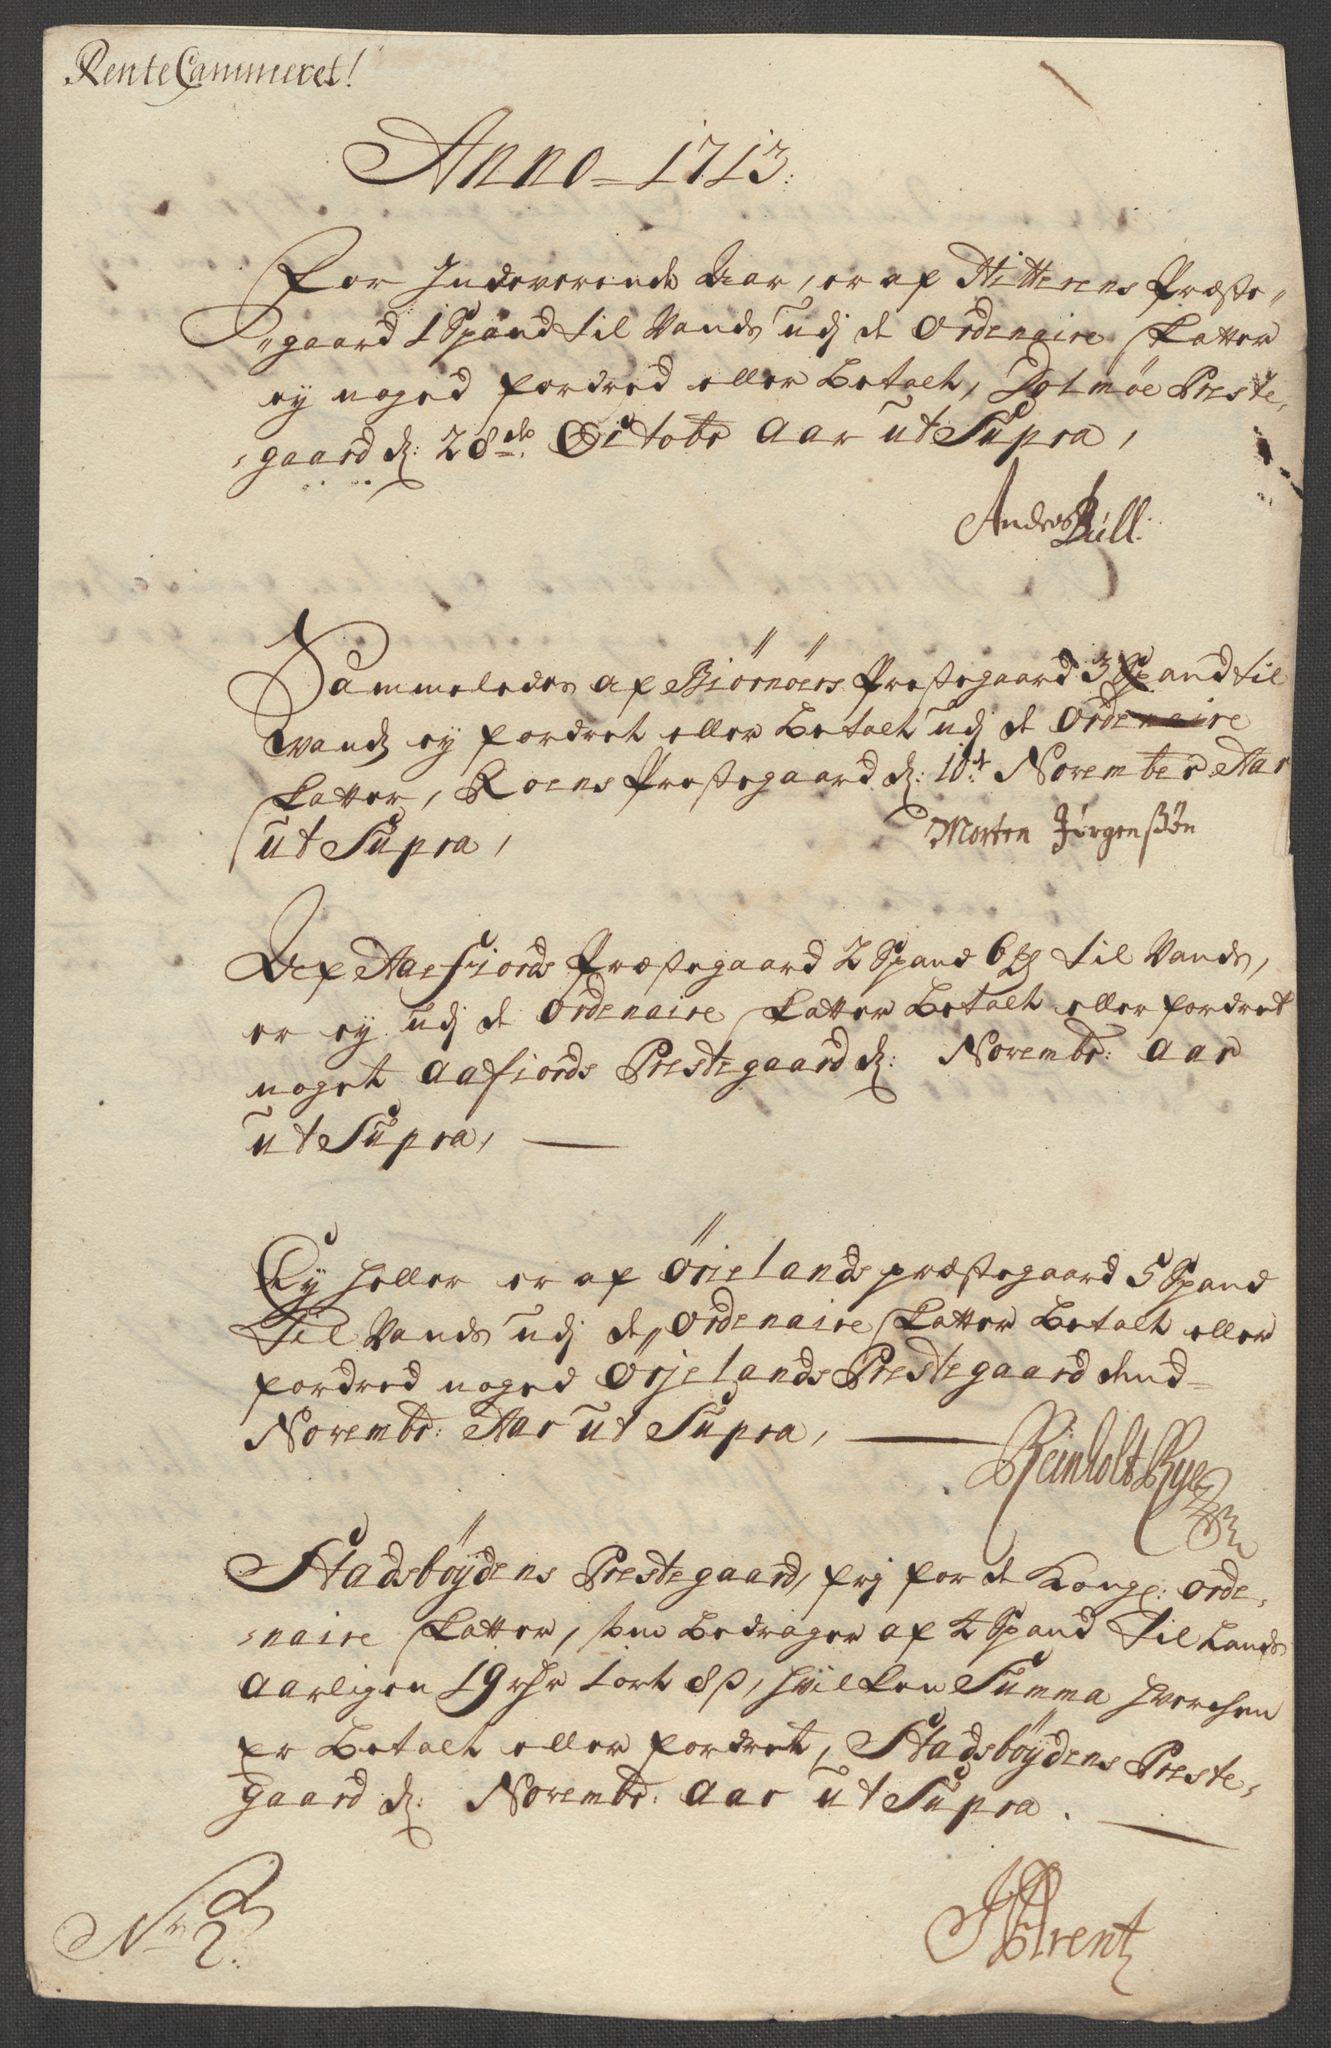 RenteCammeret!
Anno - 1713.
For Indeverende Aar, er af Hitterens Præste„
„gaard 1 Spand til Vands udj de Ordenaire Skatter
ey noged fordred eller Betalt, Dolmøe Preste,
,gaard d: 28de Octobr Aar ut Supra,
Andros Bull.
Sammeledes af Biørnøers Prestegaard 3 Spand til
Vands ey fordret eller Betalt udj de Ordenaire
Skatter, Roens Prestegaard d: 10de November Aar
ut Supra,
Morten Jørgensøn
Af Aaefiords Præstegaard 2 Spand 6 til Vands,
er ey udj de Ordenaire Skatter Betalt eller fordret
noget Aafiords Prestegaard d: Novembr: Aar
ut Supra,
Ey heller er af Ørielands præstegaard 5 Spand
Til Vands udj de Ordenaire Skatter Betalt eller
fordred noged Ørjelands Prestegaard dend
Novembr: Aar ut Supra,
Reinholt Rye
Stadsbøydens Prestegaard, frj for de Kongl: Orde,
,naire Skatter, som Bedrager af 4 Spand Til Lands
Aarligen 19 rdr 1 ort 8 s, hvilken Summa hverchen
er Betalt eller fordret, Stadsbøydens Preste,
gaard d: Novembr: Aar ut Supra.
Arentz
No 2.